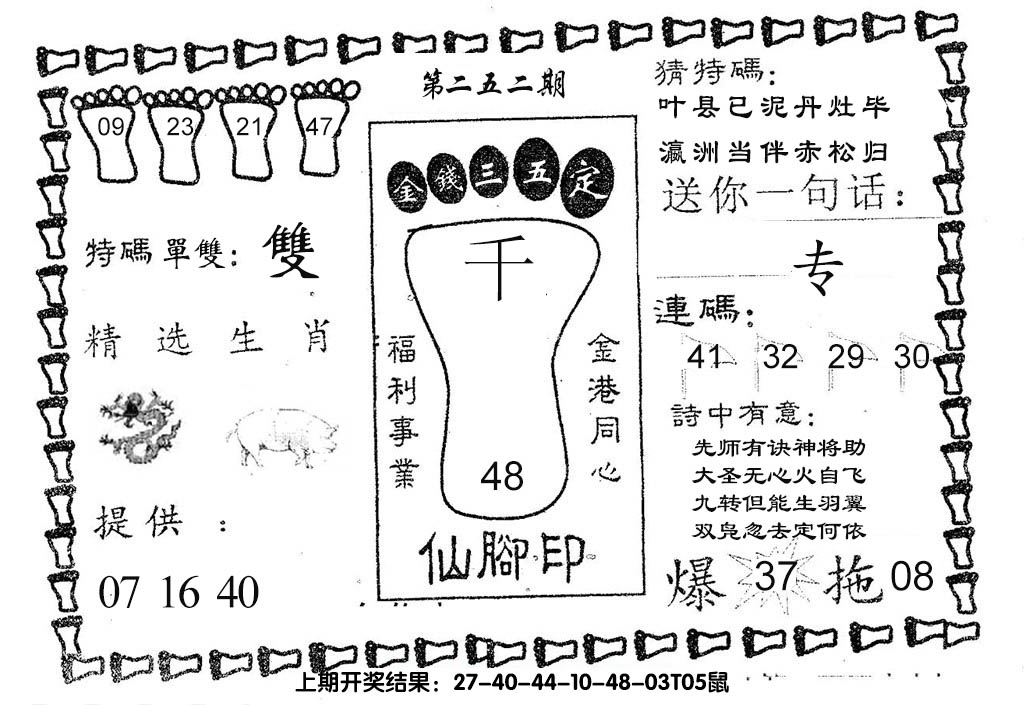 第二五二期
09 23 21 47
特碼單雙：雙
精选生肖
提供：
07 16 40
金錢三五定
千
福利事業
金港同心
48
仙腳印
猜特碼：
叶县已泥丹灶毕
瀛洲当伴赤松归
送你一句话：
专
連碼：
41 32 29 30
詩中有意：
先师有诀神将助
大圣无心火自飞
九转但能生羽翼
双凫忽去定何依
爆 37 拖 08
上期开奖结果：27-40-44-10-48-03T05鼠